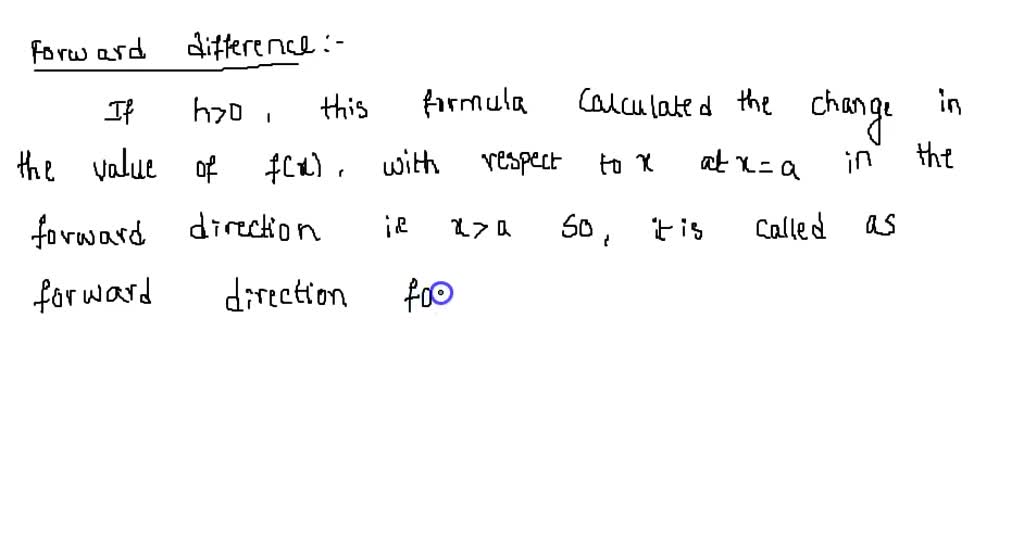 Forward difference:-
If h>0, this formula Calculated the change in
the value of f(x), with respect to x at x=a in the
forward direction ie x>a so, it is called as
forward direction fo